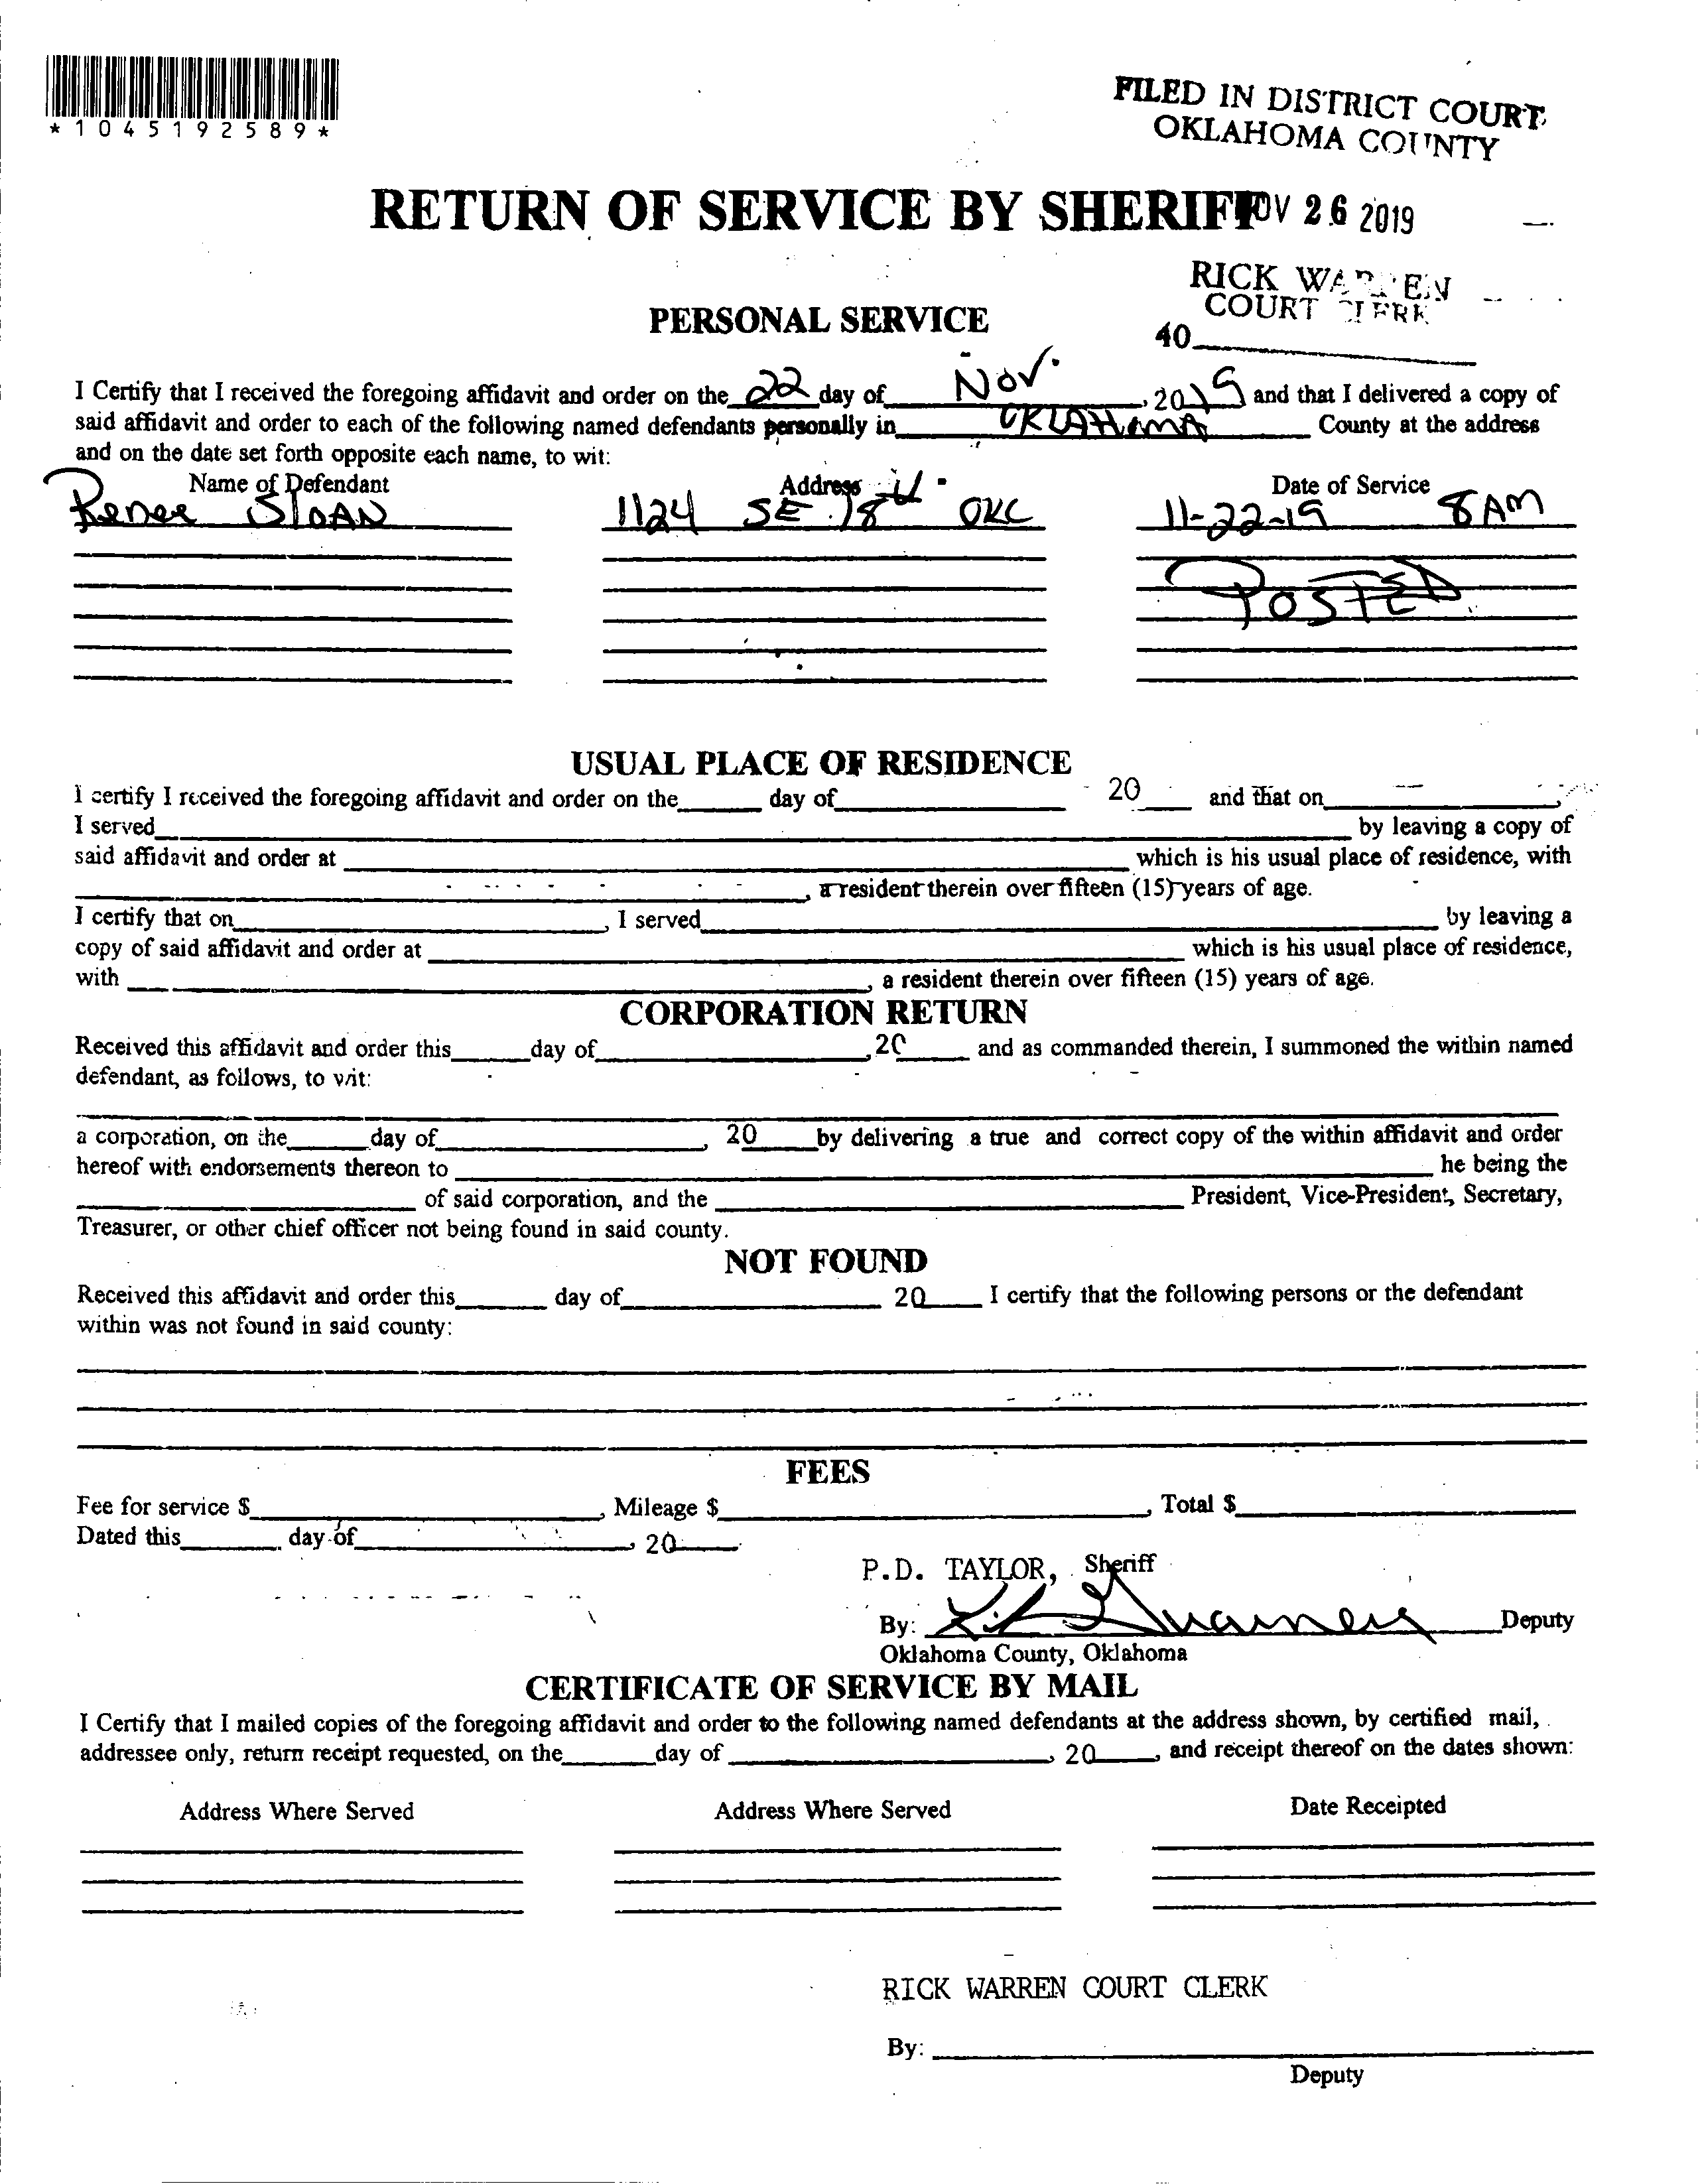 *1045192589*
FILED IN DISTRICT COURT
OKLAHOMA COUNTY
RETURN OF SERVICE BY SHERIFF
NOV 26 2019
RICK WARREN
COURT CLERK
40
PERSONAL SERVICE
I Certify that I received the foregoing affidavit and order on the 22 day of Nov. , 2019 and that I delivered a copy of
said affidavit and order to each of the following named defendants personally in OKLAHOMA County at the address
and on the date set forth opposite each name, to wit:
Name of Defendant Address Date of Service
Renee SLOAN 1124 SE 18th OKC 11-22-19 8 AM
POSTED
USUAL PLACE OF RESIDENCE
I certify I received the foregoing affidavit and order on the day of 20 and that on ,
I served by leaving a copy of
said affidavit and order at which is his usual place of residence, with
, a resident therein over fifteen (15) years of age.
I certify that on , I served by leaving a
copy of said affidavit and order at which is his usual place of residence,
with , a resident therein over fifteen (15) years of age.
CORPORATION RETURN
Received this affidavit and order this day of , 20 and as commanded therein, I summoned the within named
defendant, as follows, to wit:
a corporation, on the day of , 20 by delivering a true and correct copy of the within affidavit and order
hereof with endorsements thereon to he being the
of said corporation, and the President, Vice-President, Secretary,
Treasurer, or other chief officer not being found in said county.
NOT FOUND
Received this affidavit and order this day of 20 I certify that the following persons or the defendant
within was not found in said county:
FEES
Fee for service $ , Mileage $ , Total $
Dated this day of , 20
P.D. TAYLOR, Sheriff
By: Deputy
Oklahoma County, Oklahoma
CERTIFICATE OF SERVICE BY MAIL
I Certify that I mailed copies of the foregoing affidavit and order to the following named defendants at the address shown, by certified mail,
addressee only, return receipt requested, on the day of , 20 , and receipt thereof on the dates shown:
Address Where Served Address Where Served Date Receipted
RICK WARREN COURT CLERK
By:
Deputy